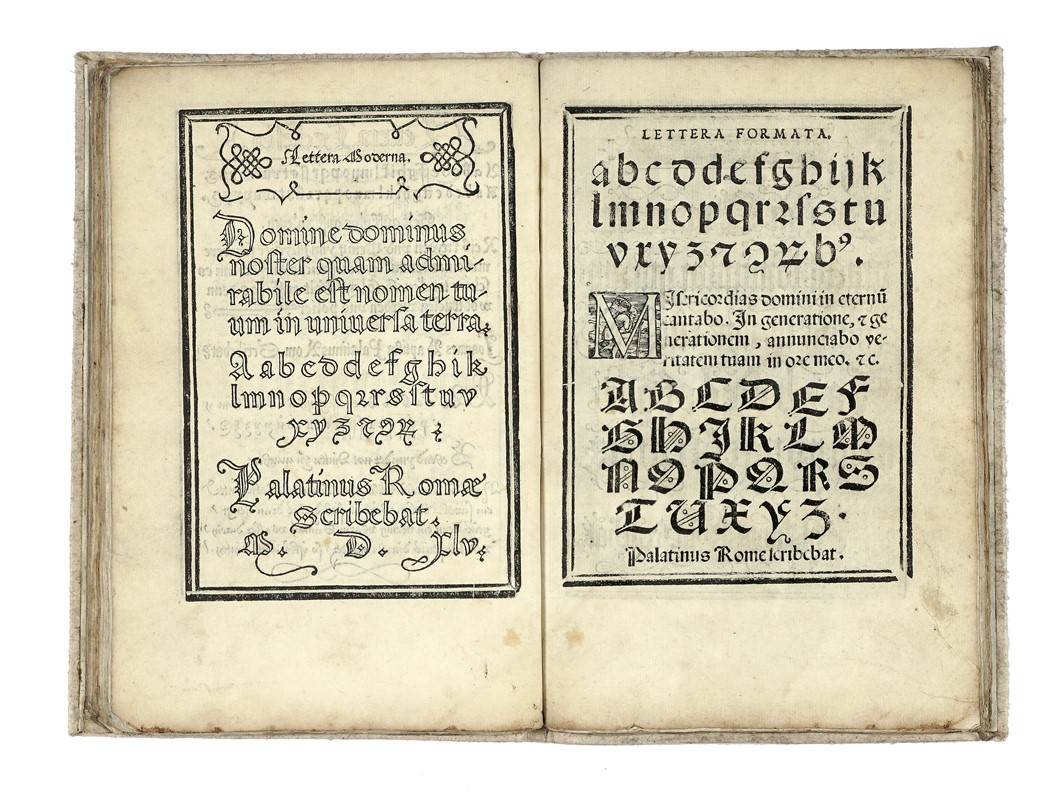 Lettera Moderna.
Domine dominus
noster quam admi-
rabile est nomen tu-
um in uniuersa terra,
A a b c d d e f g h i k
l m n o p q r r s s t u v
x y z
Palatinus Romæ
Scribebat.
M. D. Xlv,
LETTERA FORMATA.
a b c d d e f g h i j k
l m n o p q r r ſ s t u
v x y z
Misericordias domini in eternū
cantabo. In generatione, ⁊ ge
nerationem, annunciabo ve-
ritatem tuam in ore meo. ⁊ c.
A B C D E F
G H J K L M
N O P Q R S
T U X Y Z.
Palatinus Rome scribebat.